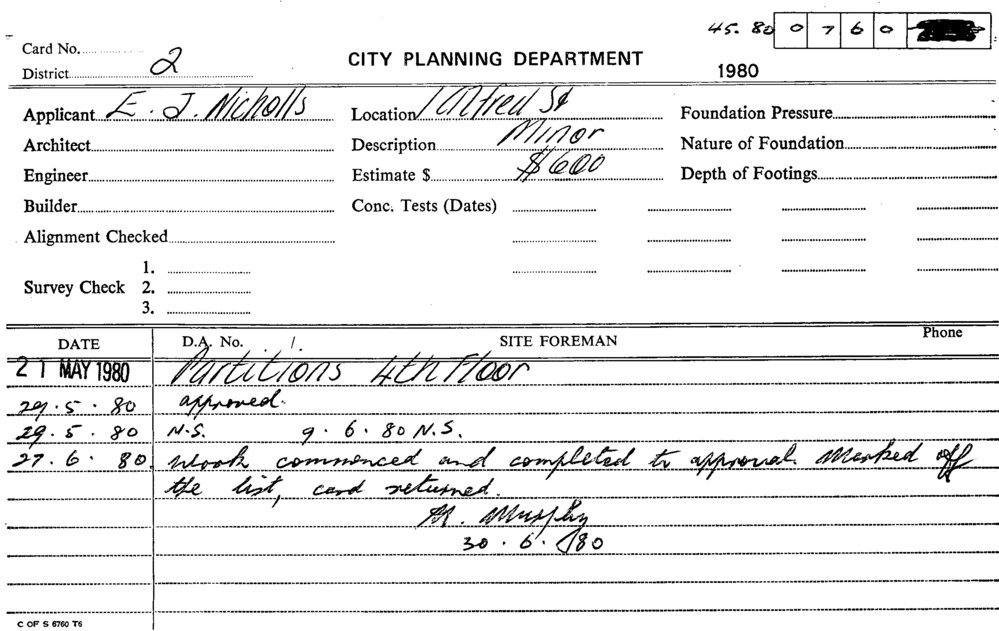 45. 80 0 7 6 0
Card No.
District 2
CITY PLANNING DEPARTMENT
1980
Applicant E. J. Nicholls
Location 1 Alfred St
Foundation Pressure
Architect
Description Minor
Nature of Foundation
Engineer
Estimate $ $600
Depth of Footings
Builder
Conc. Tests (Dates)
Alignment Checked
Survey Check
1.
2.
3.
DATE D.A. No. SITE FOREMAN Phone
21 MAY 1980 Partitions 4th Floor
29.5.80 approved.
29.5.80 N.S. 9.6.80 N.S.
27.6.80. Work commenced and completed to approval. Marked off
the list, card returned.
M. Murphy
30.6.80
C OF S 6760 T6